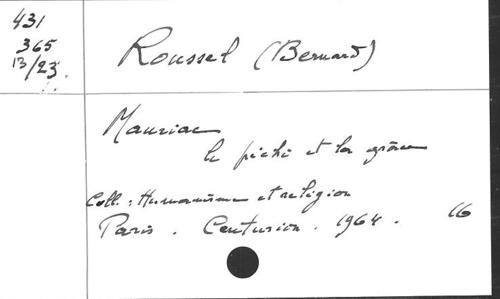 431
365
13/23.
Roussel (Bernard)
Mauriac
le péché et la grâce
Coll. : Humanisme et religion
Paris . Centurion . 1964 . 16